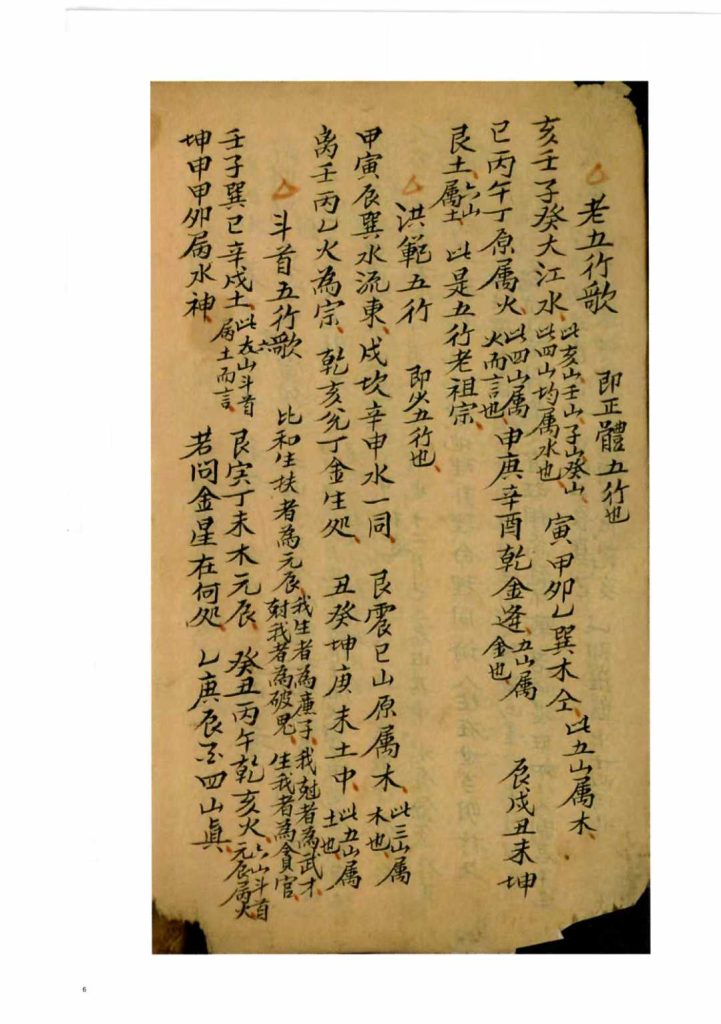 老五行歌 即正體五行也
亥壬子癸大江水 此亥山壬山子山癸山此四山均属水也 寅甲卯乙巽木仝 此五山属木
巳丙午丁原属火 此四山属火而言也 申庚辛酉乾金逢 五山属金也 辰戌丑未坤
艮土 六山属土 此是五行老祖宗
洪範五行 即少五行也
甲寅辰巽水流東 戌坎辛申水一同 艮震巳山原属木 此三山属木也
离壬丙乙火為宗 乾亥兊丁金生処 丑癸坤庚未土中 此五山属土也
斗首五行歌 比和生扶者為元辰 我生者為廉子 我尅者為武才 尅我者為破鬼 生我者為貪官
壬子巽巳辛戌土 此六山斗首属土而言 艮寅丁未木元辰 癸丑丙午乾亥火 六山斗首元辰属火
坤申甲卯属水神 若问金星在何処 乙庚辰 四山眞
6